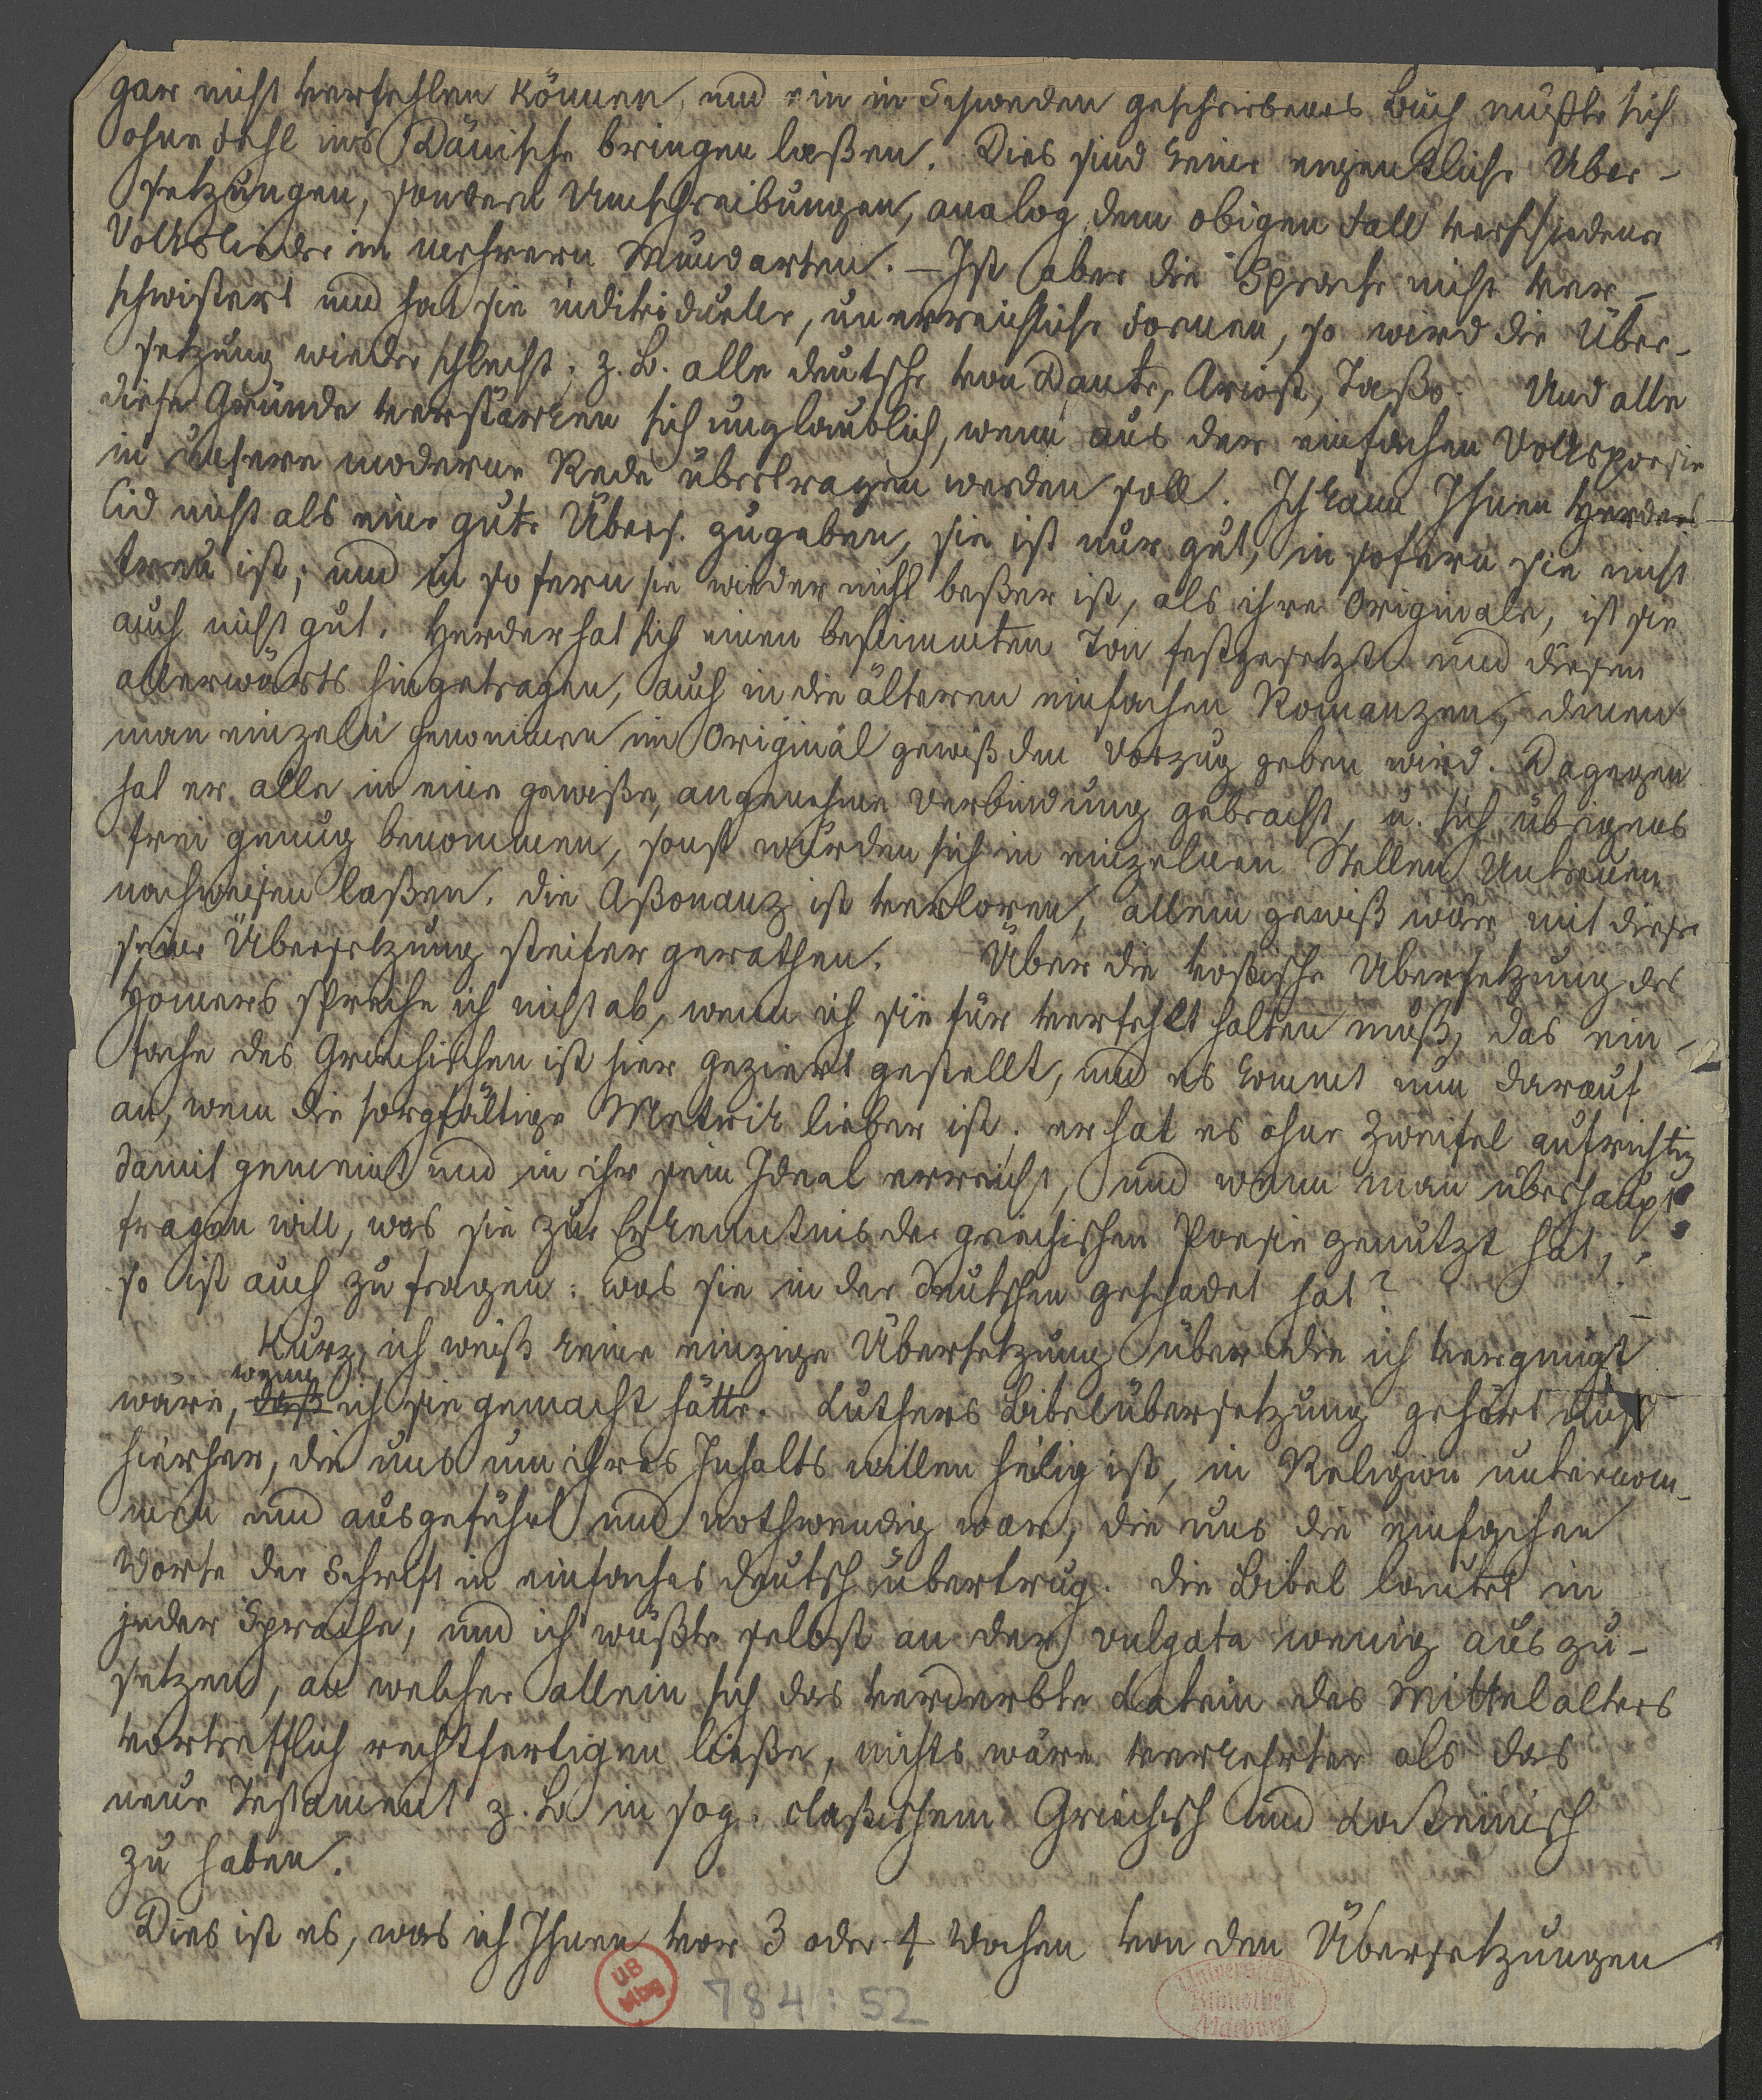 gar nicht verfehlen können, und ein in Schweden geschriebenes Buch müßte sich
ohne Fehl ins Dänische bringen laßen. Dies sind keine eigentliche Über-
setzungen, sondern Umschreibungen, analog dem obigen Fall verschiedene
Volkslieder in mehrern Mundarten. – Ist aber die Sprache nicht ver-
schwistert und hat sie individuelle, unerreichliche Formen, so wird die Über-
setzung wieder schlecht, z. B. alle deutsche von Dante, Ariost, Taßo. Und alle
diese Gründe verstärken sich unglaublich, wenn aus der einfachen Volkspoesie
in unsere moderne Rede übertragen werden soll. Ich kann Ihnen Herders
Cid nicht als eine gute Übers. zugeben, sie ist nur gut, in sofern sie nicht
treu ist; und in sofern sie wieder nicht beßer ist, als ihre Originale, ist sie
auch nicht gut. Herder hat sich einen bestimmten Ton festgesetzt und diesen
allerwärts hingetragen, auch in die älteren einfachen Romanzen, denen
man einzeln genommen im Original gewiß den Vorzug geben wird. Dagegen
hat er alle in eine gewiße, angenehme Verbindung gebracht, u. sich übrigens
frei genug benommen, sonst würden sich in einzelnen Stellen Untreuen
nachweisen laßen. die Aßonanz ist verloren, allein gewiß wäre mit dieser
seine Übersetzung steifer gerathen. Über die voßische Übersetzung des
Homers spreche ich nicht ab, wenn ich sie für verfehlt halten muß, das ein-
fache des Griechischen ist hier geziert gestellt, und es kommt nun darauf
an, wem die sorgfältige Metrik lieber ist. er hat es ohne Zweifel aufrichtig
damit gemeint und in ihr sein Ideal erreicht, und wenn man überhaupt
fragen will, was sie zur Erkenntnis der griechischen Poesie genutzt hat,
so ist auch zu fragen: was sie in der deutschen geschadet hat?
Kurz, ich weiß keine einzige Übersetzung über die ich vergnügt
wäre, daß wenn ich sie gemacht hätte. Luthers Bibelübersetzung gehört nicht
hierher, die uns um ihres Inhalts willen heilig ist, in Religion unternom-
men und ausgeführt und nothwendig war, die uns die einfachen
Worte der Schrift in einfaches deutsch übertrug. die Bibel lautet in
jeder Sprache, und ich wüßte selbst an der vulgata wenig auszu-
setzen, an welcher allein sich das verderbte Latein des Mittelalters
vortrefflich rechtfertigen ließe, nichts wäre verkehrter als das
neue Testament z. B. in sog. claßischem Griechisch und Lateinisch
zu haben.
Dies ist es, was ich Ihnen vor 3 oder 4 Wochen von den Übersetzungen
UB
Mbg
784 : 52
Universitäts-
Bibliothek
Marburg